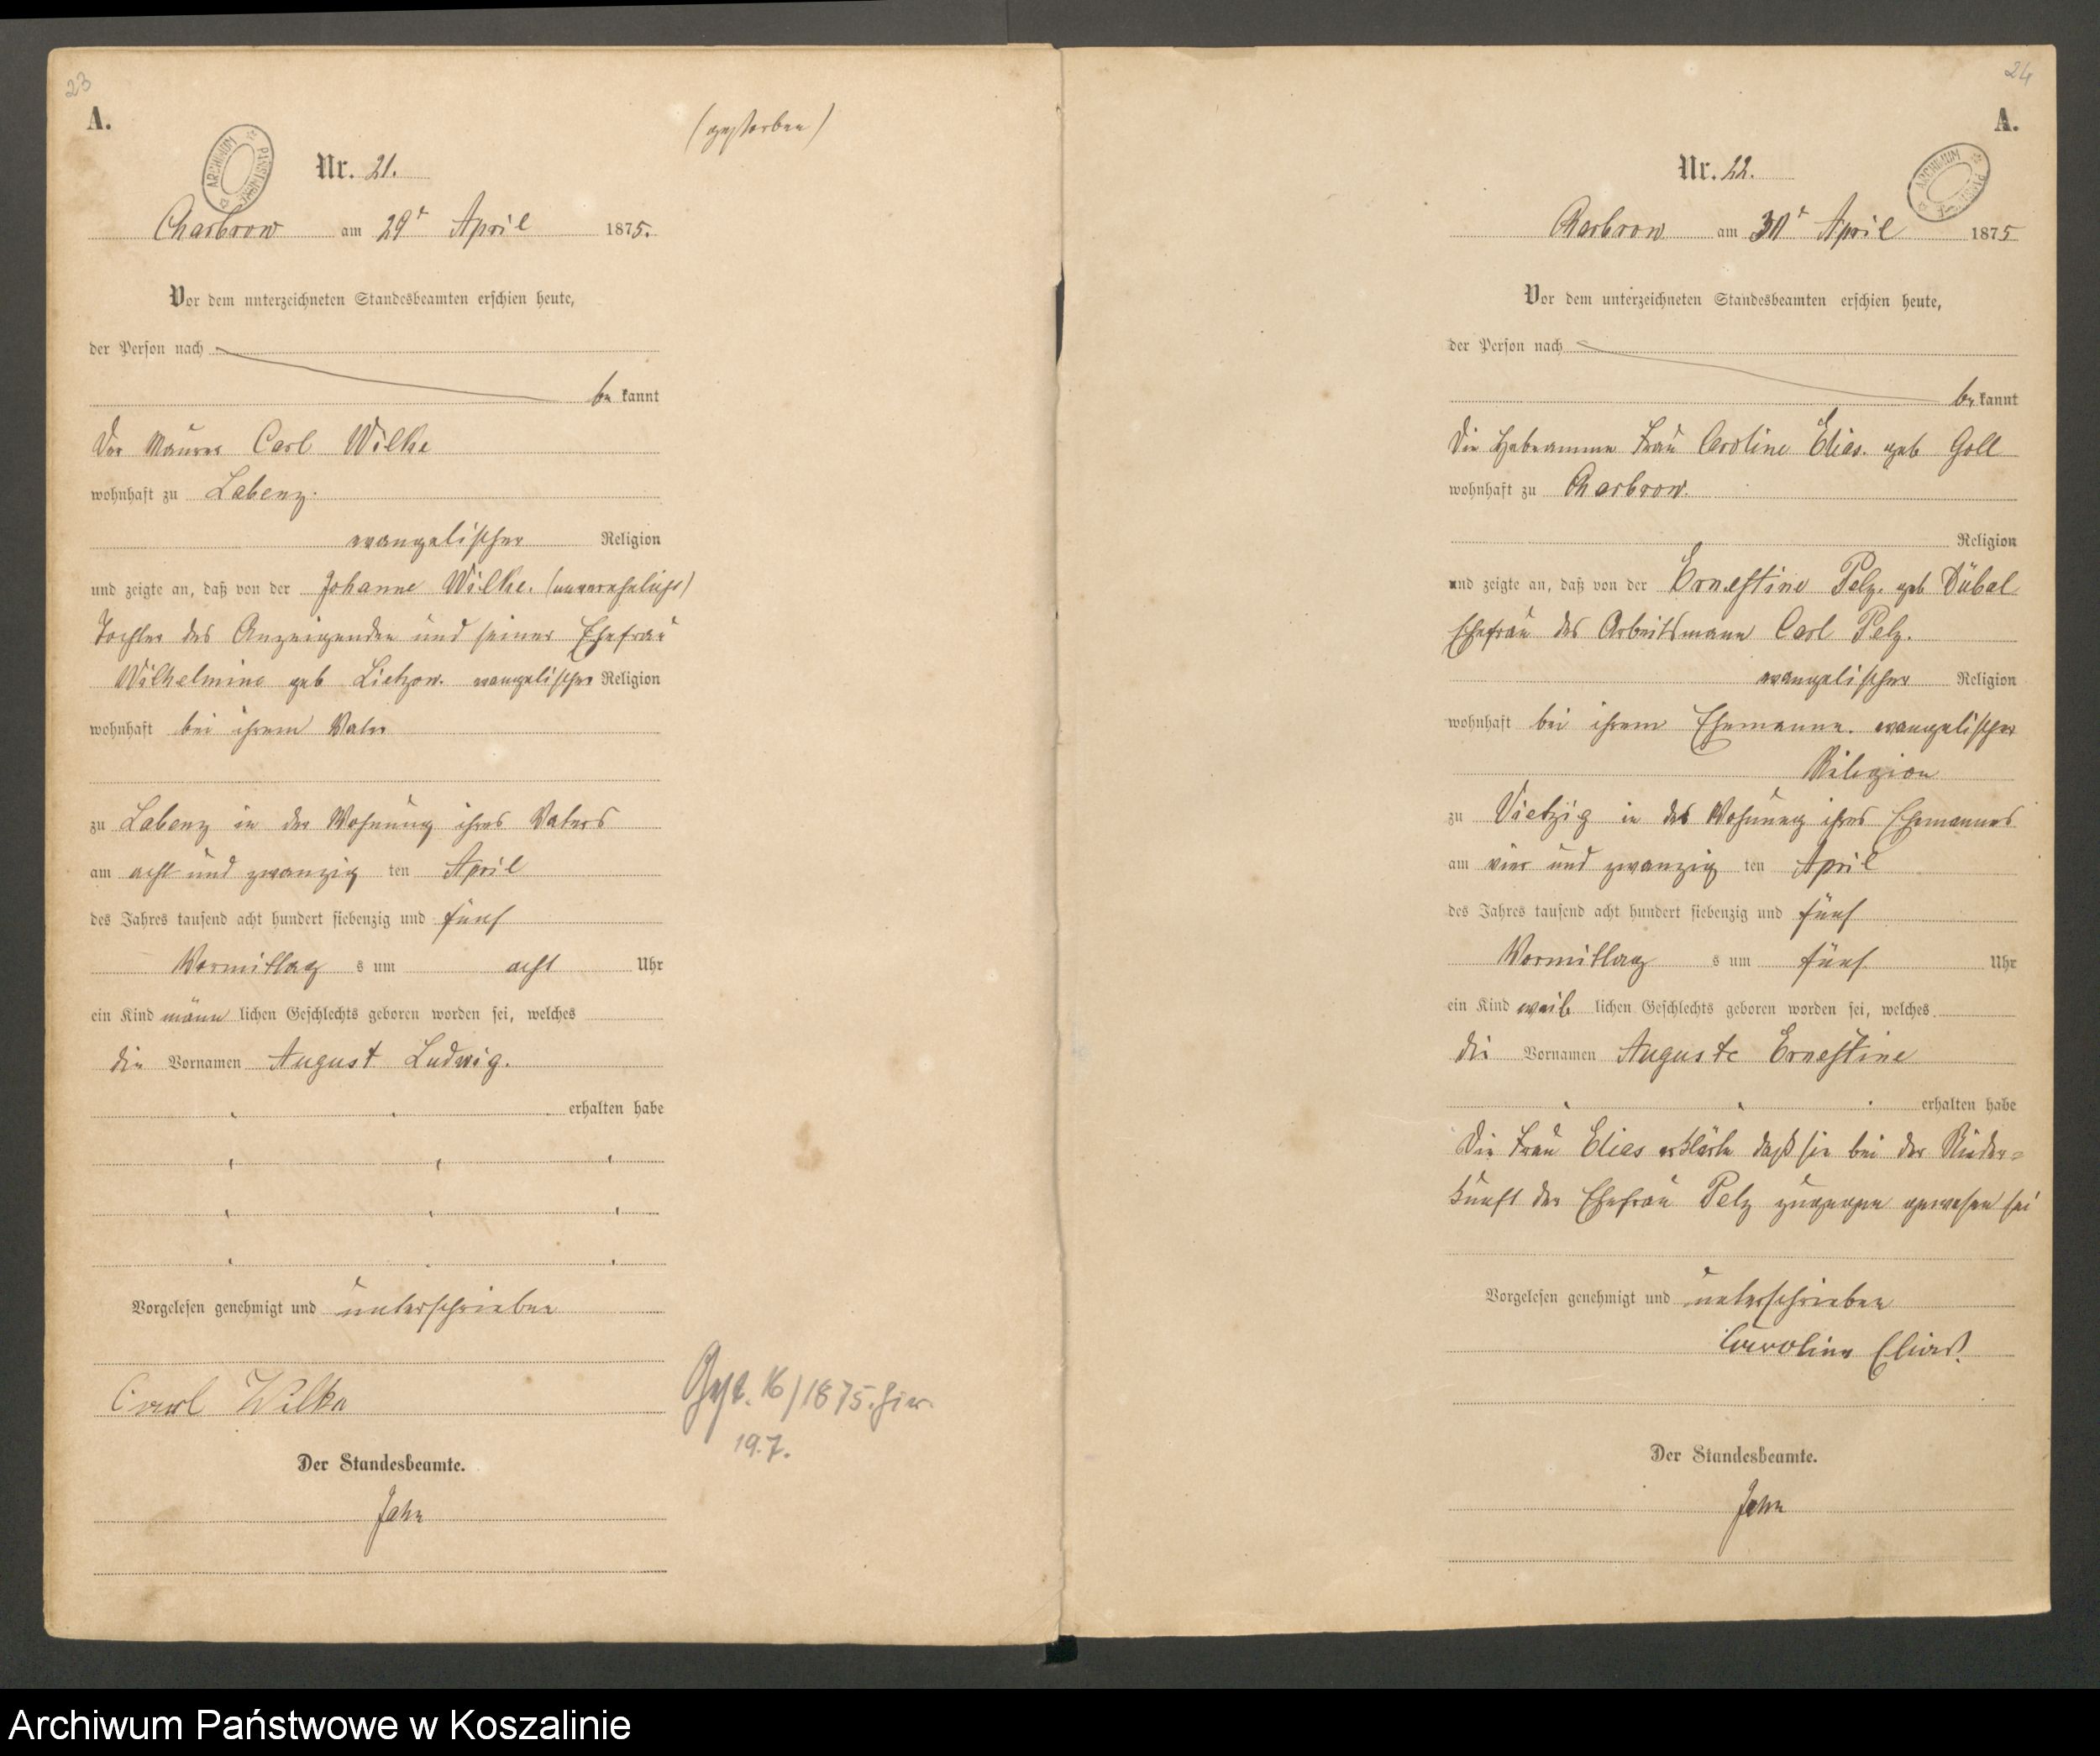 23
A.
(gestorben)
ARCHIWUM PAŃSTWOWE
Nr. 21.
Charbrow am 29t April 1875.
Vor dem unterzeichneten Standesbeamten erschien heute,
der Person nach
be kannt
Der Maurer Carl Wilke
wohnhaft zu Labenz.
evangelischer Religion
und zeigte an, daß von der Johanne Wilke. (unverehelicht)
Tochter des Anzeigenden und seiner Ehefrau
Wilhelmine geb Lietzow. evangelischer Religion
wohnhaft bei ihrem Vater
zu Labenz in der Wohnung ihres Vaters
am acht und zwanzig ten April
des Jahres tausend acht hundert siebenzig und fünf
Vormittag s um acht Uhr
ein Kind männ lichen Geschlechts geboren worden sei, welches
die Vornamen August Ludwig.
erhalten habe
Vorgelesen genehmigt und unterschrieben
Carl Wilke
Gest. 16/1875. hier.
19.7.
Der Standesbeamte.
Jahn
24
A.
ARCHIWUM
Nr. 22.
Charbrow am 30t April 1875
Vor dem unterzeichneten Standesbeamten erschien heute,
der Person nach
be kannt
Die Hebeamme Frau Caroline Elias. geb Goll
wohnhaft zu Charbrow.
Religion
und zeigte an, daß von der Ernestine Pelz. geb Dübal
Ehefrau des Arbeitsmann Carl Pelz.
evangelischer Religion
wohnhaft bei ihrem Ehemanne. evangelischer
Religion
zu Vietzig in der Wohnung ihres Ehemannes
am vier und zwanzig ten April
des Jahres tausend acht hundert siebenzig und fünf
Vormittag s um fünf Uhr
ein Kind weib lichen Geschlechts geboren worden sei, welches
die Vornamen Auguste Ernestine
erhalten habe
Die Frau Elias erklärte daß sie bei der Nieder=
kunft der Ehefrau Pelz zugegen gewesen sei
Vorgelesen genehmigt und unterschrieben
Caroline Elias.
Der Standesbeamte.
Jahn
Archiwum Państwowe w Koszalinie